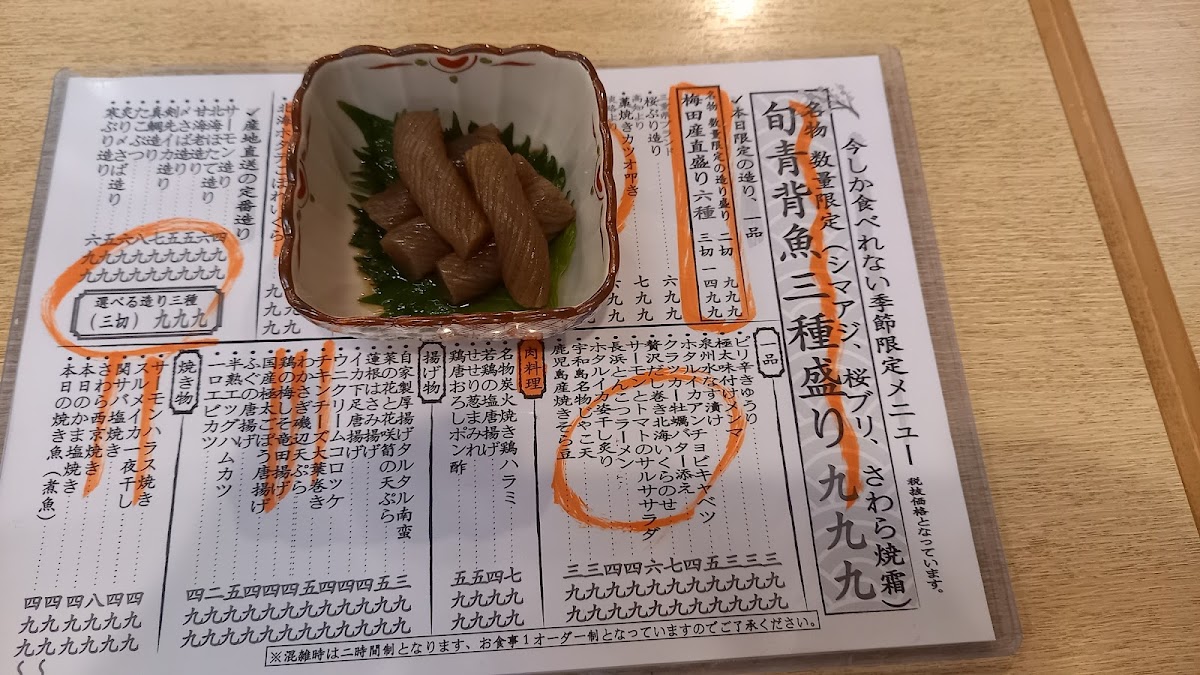 今しか食べれない季節限定メニュー
税抜価格となっています。
名物 数量限定(シマアジ、桜ブリ、さわら焼霜)
旬青背魚三種盛り九九九
✓本日限定の造り、一品
名物 数量限定の造り盛り 二切 九九九
梅田産直盛り 六種 三切 一四九九
桜ぶり造り 六九九
高知より
藁焼きカツオ叩き 七九九
北海ホタテこぼれいくら 九九九
✓産地直送の定番造り
サーモン造り 四九九
北海ほたて造り 六九九
甘海老造り 五九九
〆さば造り 五九九
剣先イカ造り 七九九
真鯛造り 八九九
たこぶつ 六九九
炙り〆さば造り 五九九
寒ぶり造り 六九九
選べる造り三種
(三切) 九九九
一品
ピリ辛きゅうり 三九九
極太味付けメンマ 三九九
泉州水なす漬け 五九九
ホタルイカアンチョビキャベツ
クラッカー牡蠣バター添え
贅沢だし巻き北海いくらのせ
サーモンとトマトのサルササラダ
長浜とんこつラーメン
ホタルイカ姿干し炙り
宇和島名物じゃこ天 三九九
鹿児島産焼きそら豆 三九九
肉料理
名物炭火焼き鶏ハラミ 七九九
若鶏の塩唐揚げ 四九九
せせり葱まみれ 五九九
鶏唐おろしポン酢 五九九
揚げ物
自家製厚揚げタルタル南蛮 三九九
菜の花と花咲筍の天ぷら 五九九
蓮根はさみ揚げ 四九九
イカ下足唐揚げ 四九九
ウニクリームコロッケ 四九九
チキンチーズ大葉巻き 五九九
わかさぎ磯辺天ぷら 四九九
鶏の梅しそ竜田揚げ 四九九
国産極太ごぼう唐揚げ 四九九
ふぐの唐揚げ 五九九
半熟エッグハムカツ 二九九
一口エビカツ 四九九
焼き物
サーモンハラス焼き 四九九
スルメイカ一夜干し 六九九
関サバ塩焼き 八九九
さわら西京焼き 四九九
本日のかま塩焼き 四九九〜
本日の焼き魚(煮魚) 四九九〜
※混雑時は二時間制となります、お食事1オーダー制となっていますのでご了承ください。